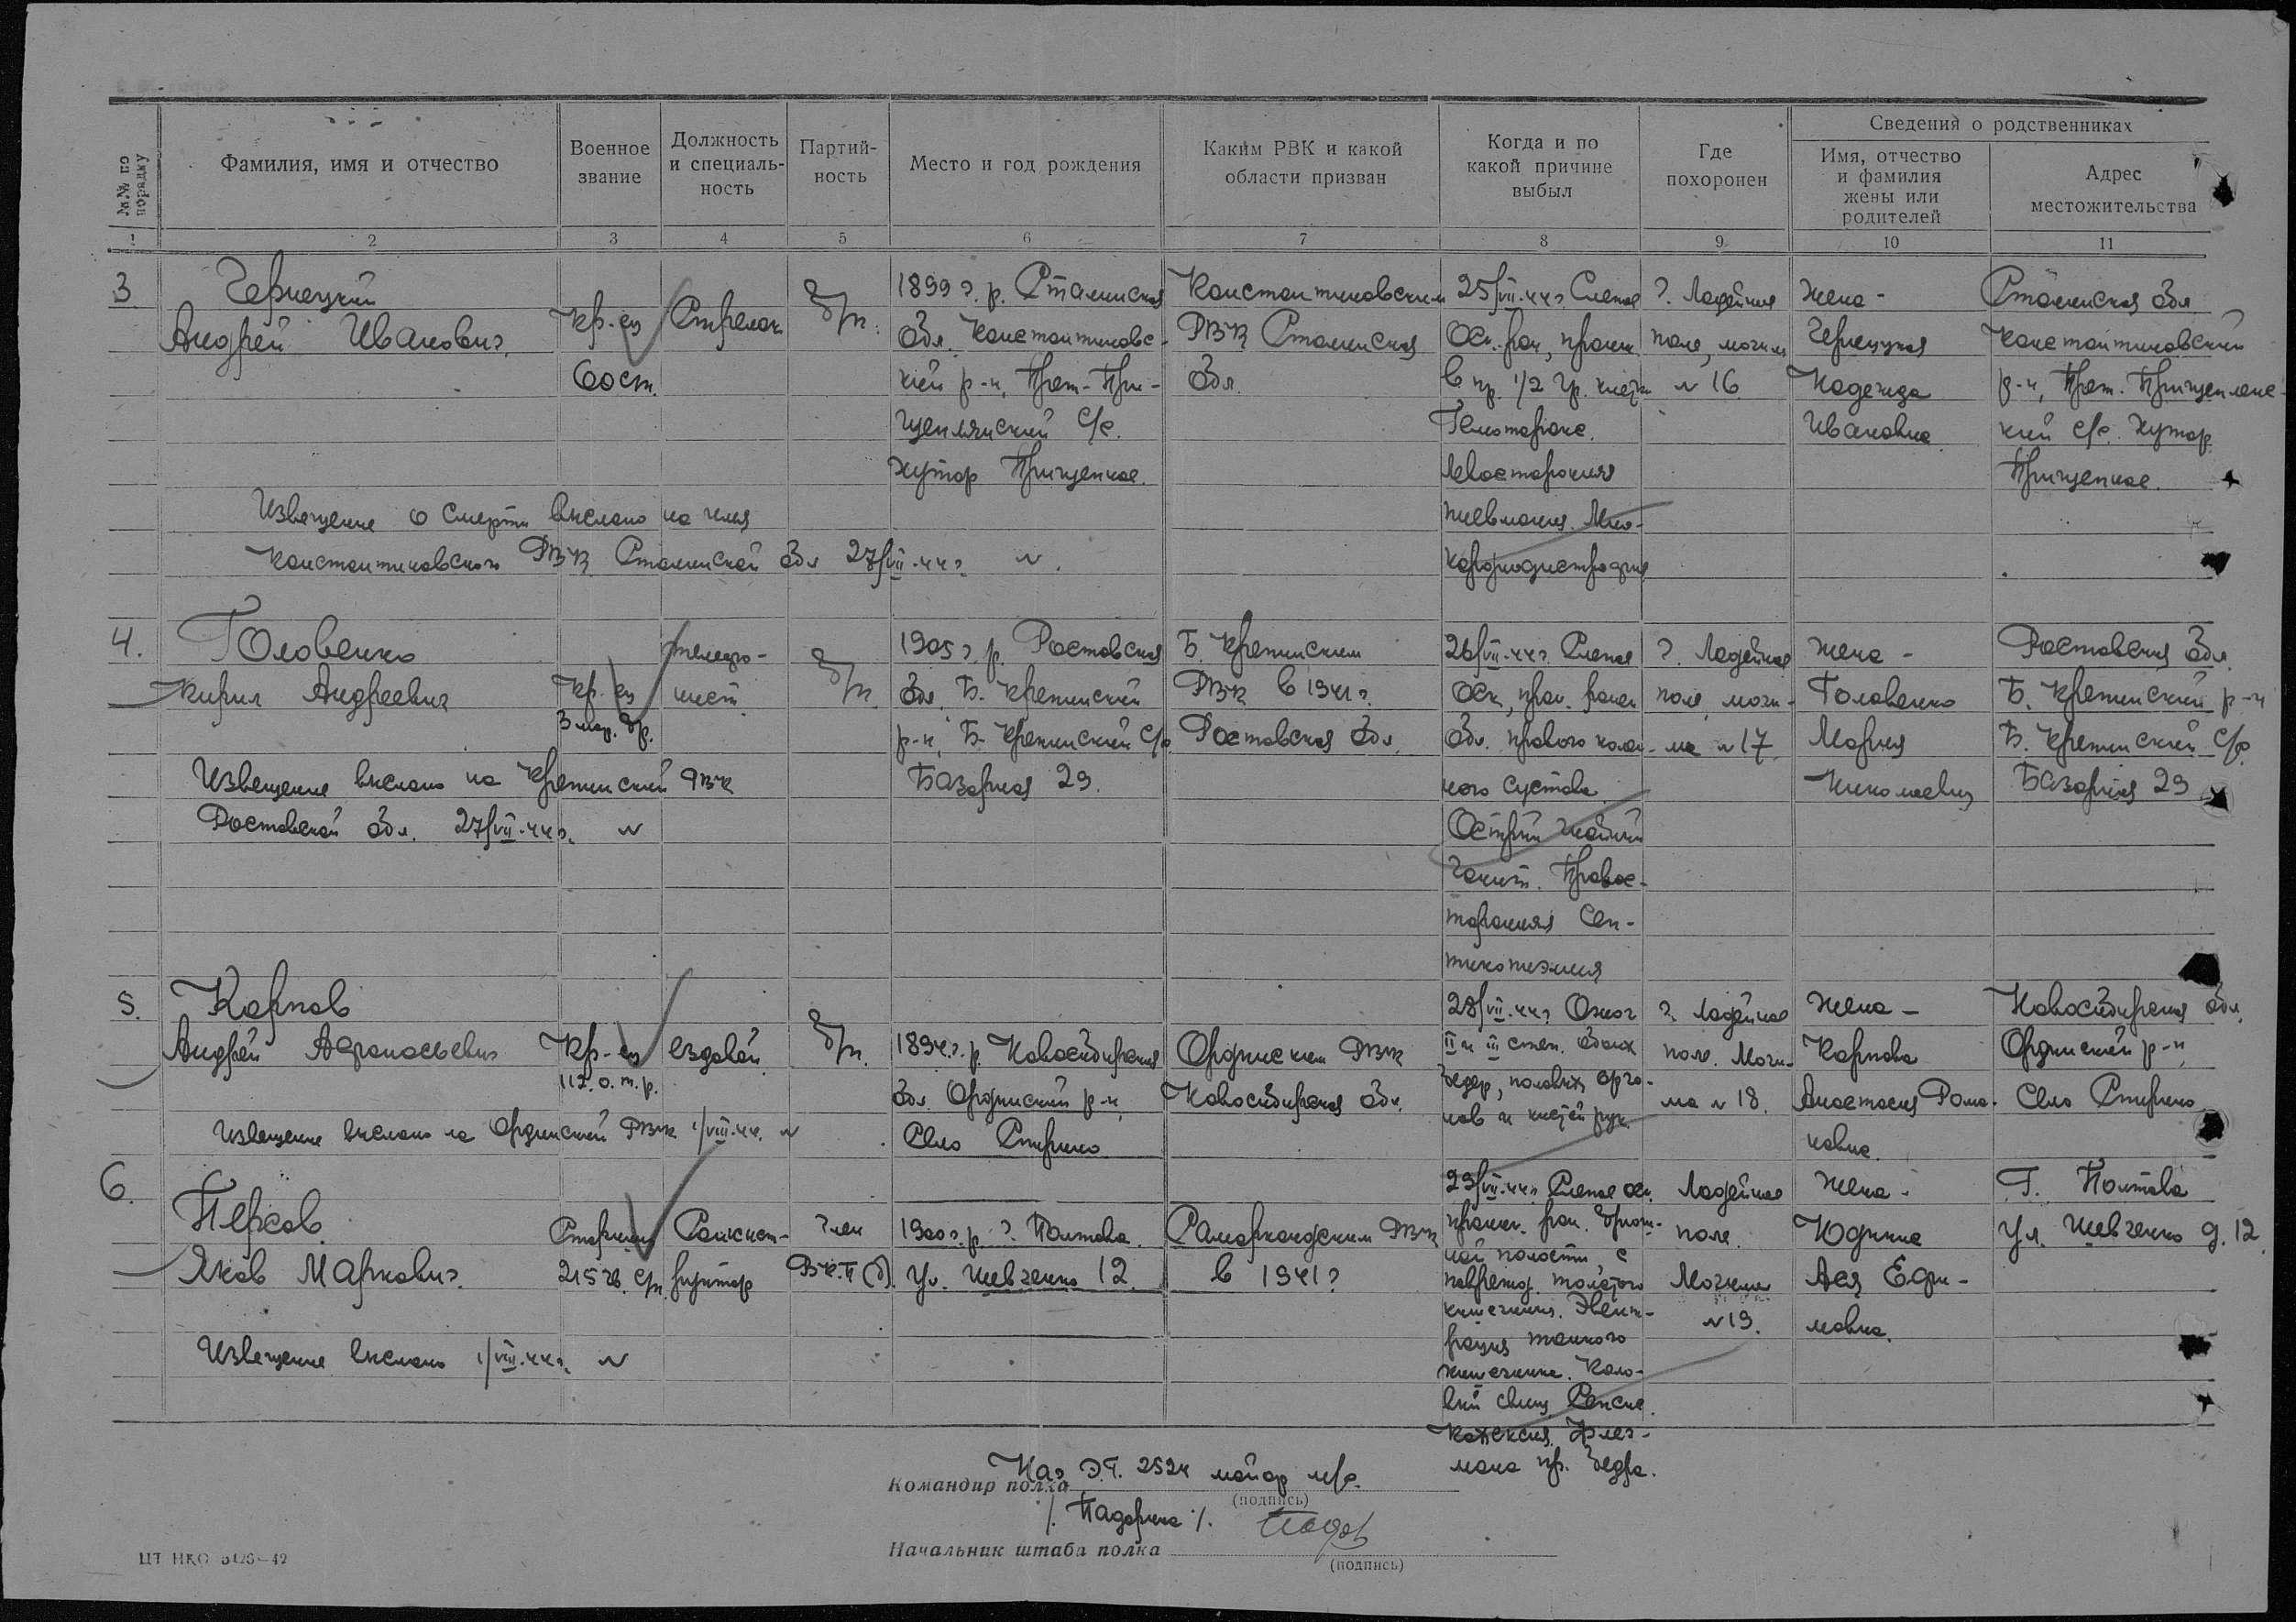 №№ по порядку
Фамилия, имя и отчество
Военное звание
Должность и специальность
Партийность
Место и год рождения
Каким РВК и какой области призван
Когда и по какой причине выбыл
Где похоронен
Сведения о родственниках
Имя, отчество и фамилия жены или родителей
Адрес местожительства
1 2 3 4 5 6 7 8 9 10 11
3
Чернецкий
Андрей Иванович
Кр-ец
Стрелок
б/п.
1899 г. р. Сталинская
обл. Константиновс-
кий р-н,
с/с.
хутор
Константиновским
РВК Сталинская
обл.
25/VII-44 г. Слепое
Оск. ран, прон.
в пр. 1/2 гр. клетк
Гемоторакс.
Левосторонняя
пневмония. Мио-
кардиодистрофия
г. Лодейное
поле, могил
№ 16
Жена -
Чернецкая
Надежда
Ивановна
Сталинская обл
Константиновский
р-н,
кий с/с. хутор
Извещение о смерти выслано на имя
Константиновского РВК Сталинской обл 27/VII-44 г. №.
4.
Головенко
Кирил Андреевич
Кр-ец
3 мор. бр.
телефо-
нист
б/п.
1905 г. р. Ростовская
обл. Б. Крепинский
р-н, Б-Крепинский с/с
Базарная 29.
Б. Крепинским
РВК в 1941 г.
Ростовская обл.
26/VII-44 г. Слепое
оск, прон. ранен
обл. правого колен-
ного сустава
Острый гнойный
гонит. Правос-
торонняя Сеп-
тикопиэмия
г. Лодейное
поле моги-
ла № 17
Жена -
Головенко
Мария
Николаевна
Ростовская обл.
Б. Крепинский р-н
Б. Крепинский с/с.
Базарная 29
Извещение выслано на Крепинский РВК
Ростовской обл. 27/VII-44 г. №
5.
Карпов
Андрей Афанасьевич
Кр-ец
112. о. т. р.
ездовой
б/п.
1894 г. р. Новосибирская
обл. Ординский р-н,
Село Спирино
Ординским РВК
Новосибирская обл.
28/VII-44 г. Ожог
II и III степ. обоих
бедер, половых орга-
нов и кистей рук
г. Лодейное
поле. Моги-
ла № 18.
Жена -
Карпова
Анастасия Рома-
новна.
Новосибирская обл.
Ординский р-н,
Село Спирино
Извещение выслано на Ординский РВК 1/VIII-44. №
6.
Яков Маркович.
Старшина
Санинст-
руктор
член
ВКП(б).
1900 г. р. г. Полтава.
Ул. Шевченко 12.
Самаркандским РВК
в 1941 г
29/VII-44 г. Слепое оск.
проник. ран. брюш-
ной полости, с
поврежд. толстого
кишечника. Эвент-
рация тонкого
кишечника. Кало-
вый свищ. Сепсис.
Флег-
мона пр. бедра.
Лодейное
поле.
Могила
№ 19.
Жена -
Юдина
Ася Ефи-
мовна.
Г. Полтава
ул. Шевченко д. 12.
Извещение выслано 1/VIII-44 г. №
Нач Э.Г. 2524 майор м/с.
Командир полка
(подпись)
/. Падорина /.
Начальник штаба полка
(подпись)